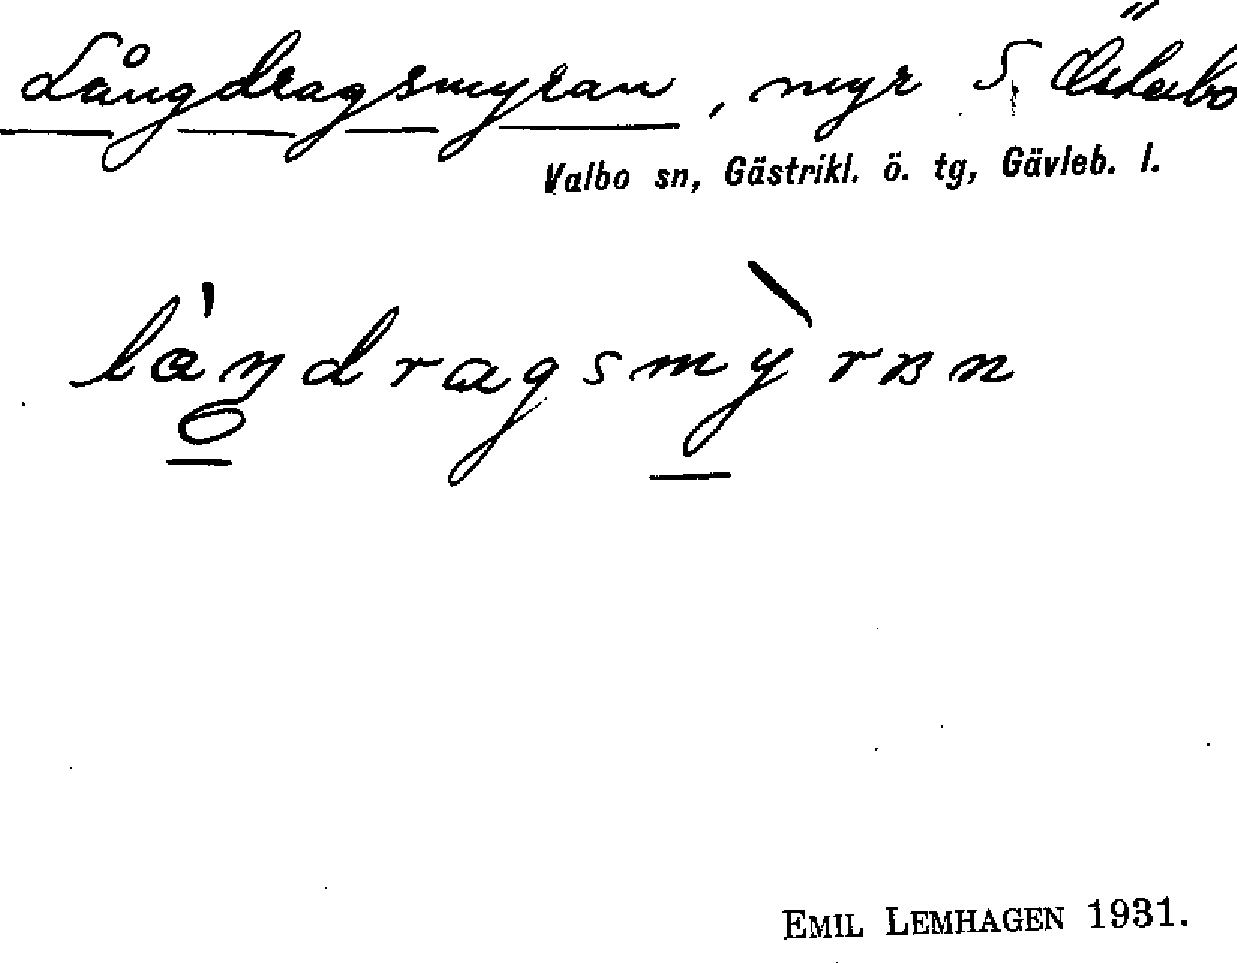 Långdragsmyran, myr S. Österbo
Valbo sn, Gästrikl. ö. tg, Gävleb. l.
EMIL LEMHAGEN 1931.